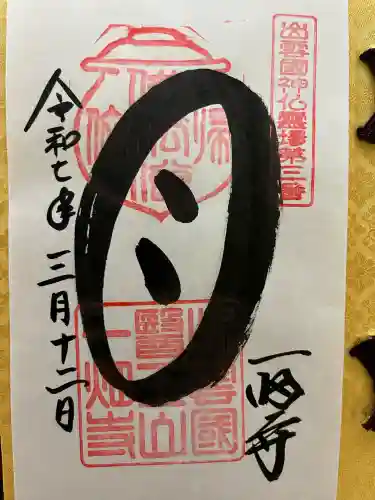 出雲國神仏霊場第三番
目
一畑寺
令和七年三月十二日
出雲國
醫王山
一畑寺